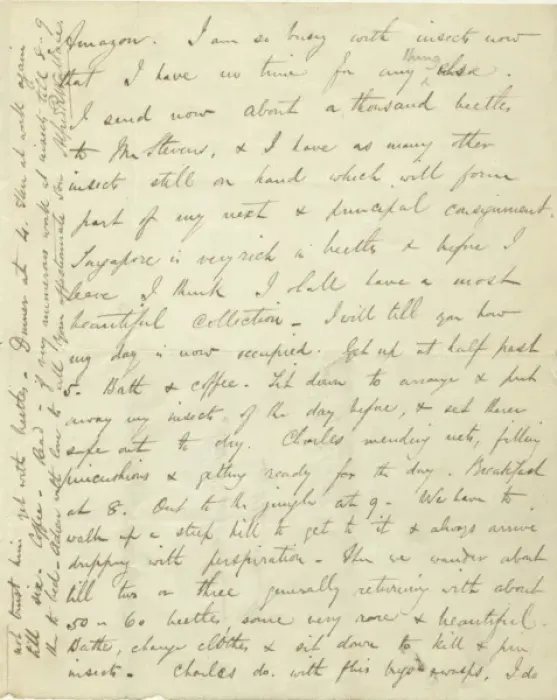 Amazon. I am so busy with insects now
that I have no time for any thing else.
I send now about a thousand beetles
to Mr Stevens, & I have as many other
insects still on hand which will form
part of my next & principal consignment.
Singapore is very rich in beetles & before I
leave I think I shall have a most
beautiful collection_ I will tell you how
my day is now occupied. Get up at half past
5. Bath & coffee. Sit down to arrange & put
away my insects of the day before, & set them
safe out to dry. Charles mending nets, filling
pincushions & getting ready for the day. Breakfast
at 8. Out to the jungle at 9. We have to
walk up a steep hill to get to it & always arrive
dripping with perspiration_ Then we wander about
till two or three generally returning with about
50 or 60 beetles, some very rare & beautiful.
Bathe, change clothes & sit down to kill & pin
insects. Charles do. with flies bugs & wasps, I do
not trust him yet with beetles_ Dinner at 4. Then at work again
till six. Coffee_ Read_ if very numerous work at insects till 8-9
then to bed_ Adieu with love to all Your affectionate Son Alfred R. Wallace.